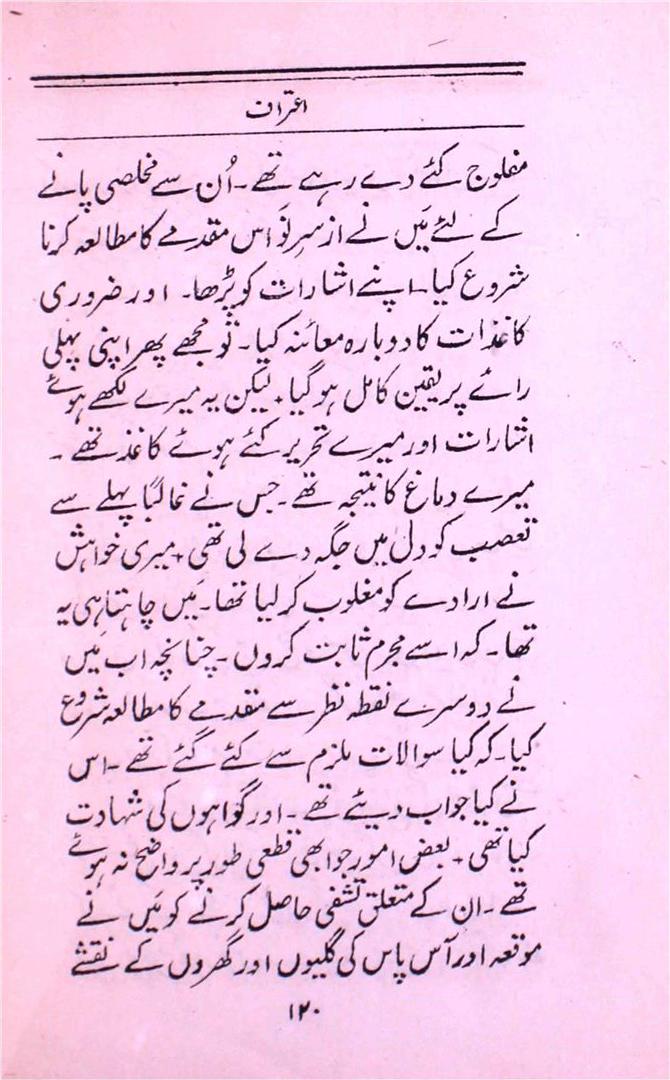 اعتراف
مفلوج کئے دے رہے تھے۔ اُن سے مخلصی پانے
کے لئے مَیں نے از سرِ نَو اس مقدمے کا مطالعہ کرنا
شروع کیا۔ اپنے اشارات کو پڑھا۔ اور ضروری
کاغذات کا دوبارہ معائنہ کیا۔ تو مجھے پھر اپنی پہلی
رائے پر یقین کامل ہو گیا، لیکن یہ میرے لکھے ہوئے
اشارات اور میرے تحریر کئے ہوئے کاغذ تھے۔
میرے دماغ کا نتیجہ تھے۔ جس نے غالباً پہلے سے
تعصب کو دل میں جگہ دے لی تھی، میری خواہش
نے ارادے کو مغلوب کر لیا تھا۔ مَیں چاہتا ہی یہ
تھا۔ کہ اسے مجرم ثابت کروں۔ چنانچہ اب مَیں
نے دوسرے نقطہ نظر سے مقدمے کا مطالعہ شروع
کیا۔ کہ کیا سوالات ملزم سے کئے گئے تھے۔ اس
نے کیا جواب دیئے تھے۔ اور گواہوں کی شہادت
کیا تھی، بعض امور جو ابھی قطعی طور پر واضح نہ ہوئے
تھے۔ ان کے متعلق تشفی حاصل کرنے کو مَیں نے
موقعہ اور آس پاس کی گلیوں اور گھروں کے نقشے
۱۲۰